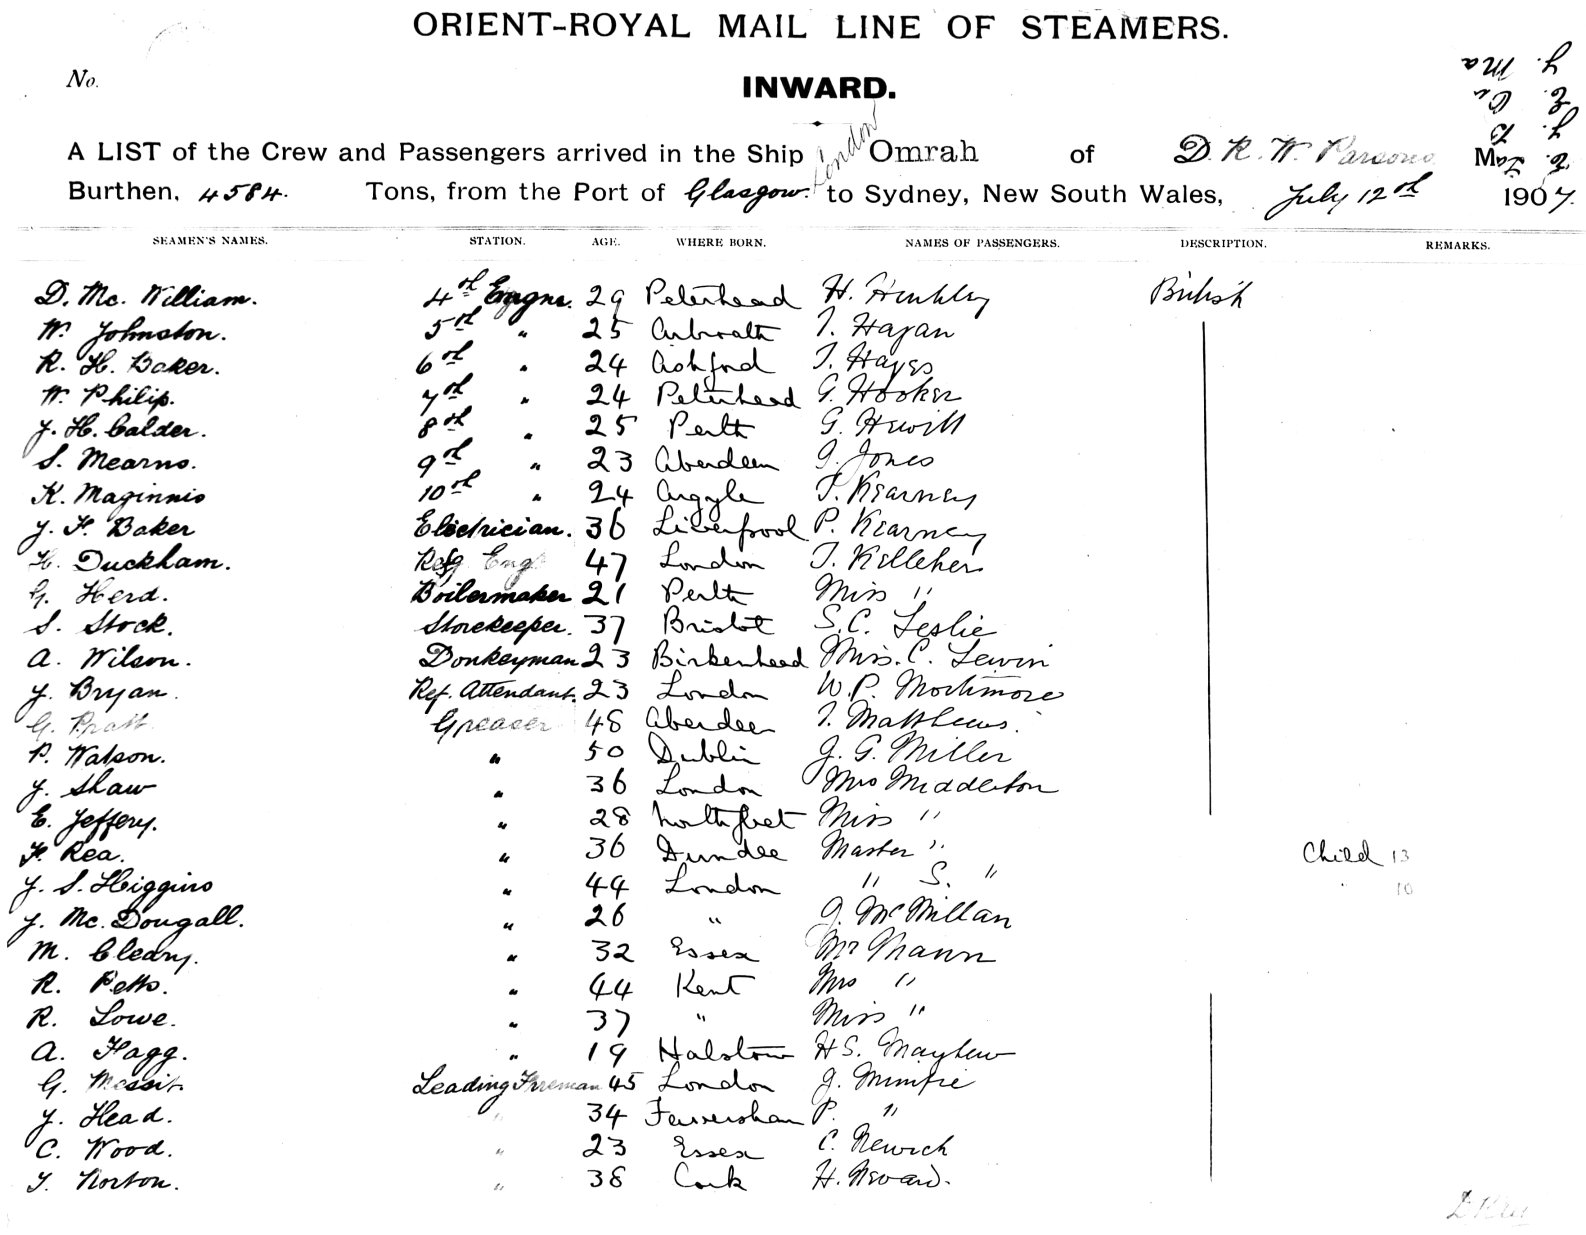 ORIENT-ROYAL MAIL LINE OF STEAMERS.
No.
INWARD.
A LIST of the Crew and Passengers arrived in the Ship London Omrah of D. R. W. Parsons
Burthen, 4584. Tons, from the Port of Glasgow. to Sydney, New South Wales, July 12th 1907.
SEAMEN'S NAMES. STATION. AGE. WHERE BORN. NAMES OF PASSENGERS. DESCRIPTION. REMARKS.
D. Mc. William. 4th Engnr. 29 Peterhead H. Hinkley British
W. Johnston. 5th " 25 Arbroath T. Hagan
R. H. Baker. 6th " 24 Ashford T. Hayes
W. Philip. 7th " 24 Peterhead G. Hooker
J. H. Calder. 8th " 25 Perth G. Hewitt
S. Mearns. 9th " 23 Aberdeen J. Jones
K. Maginnis 10th " 24 Argyle T. Kearney
J. F. Baker Electrician. 36 Liverpool P. Kearney
H. Duckham. Refg Engr 47 London T. Kelleher
G. Herd. Boilermaker 21 Perth Miss "
S. Stock. Storekeeper. 37 Bristol S. C. Leslie
A. Wilson. Donkeyman 23 Birkenhead Miss. C. Lewin
J. Bryan. Ref. Attendant. 23 London W. P. Mortimore
G. Pratt. Greaser 48 Aberdee T. Matthews.
P. Watson. " 50 Dublin J. G. Miller
J. Shaw " 36 London Mrs Middleton
E. Jeffery. " 28 Northfleet Miss "
F. Rea. " 36 Dundee Master " Child 13
J. S. Higgins " 44 London " S. " " 10
J. Mc. Dougall. " 26 " J. McMillan
M. Cleary. " 32 Essex Mr Mann
R. Petts. " 44 Kent Mrs "
R. Lowe. " 37 " Miss "
A. Flagg. " 19 Halstow H S. Mayhew
G. Messit Leading Fireman 45 London J. Mimfie
J. Head. " 34 Feversham P. "
C. Wood. " 23 Essex C. Newick
T. Norton. " 38 Cork H. Nevard.